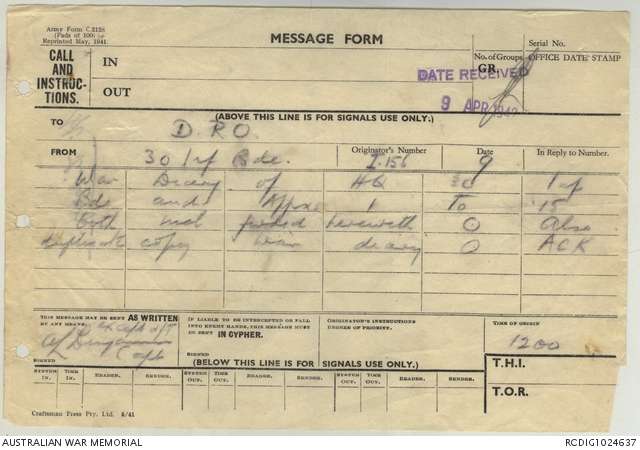 Army Form C.2128
(Pads of 100.)
Reprinted May, 1941.
MESSAGE FORM
Serial No.
CALL AND INSTRUC-TIONS.
IN
OUT
No. of Groups
GR.
OFFICE DATE STAMP
DATE RECEIVED
9 APR 1943
(ABOVE THIS LINE IS FOR SIGNALS USE ONLY.)
TO D.R.O.
FROM 30 Inf Bde.
Originator's Number I.156
Date 9
In Reply to Number
War Diary of HQ 30 Inf
Bde and Appx 1 To 15
Both incl fwded herewith O Also
duplicate copy war diary O ACK
THIS MESSAGE MAY BE SENT AS WRITTEN
BY ANY MEANS. except W/T
Capt
SIGNED
IF LIABLE TO BE INTERCEPTED OR FALL
INTO ENEMY HANDS, THIS MESSAGE MUST
BE SENT IN CYPHER.
SIGNED
ORIGINATOR'S INSTRUCTIONS
DEGREE OF PRIORITY.
TIME OF ORIGIN
1200
(BELOW THIS LINE IS FOR SIGNALS USE ONLY.)
T.H.I.
T.O.R.
SYSTEM IN. TIME IN. READER. SENDER. SYSTEM OUT. TIME OUT. READER. SENDER. SYSTEM OUT. TIME OUT. READER. SENDER.
Craftsman Press Pty. Ltd. 8/41
AUSTRALIAN WAR MEMORIAL
RCDIG1024637